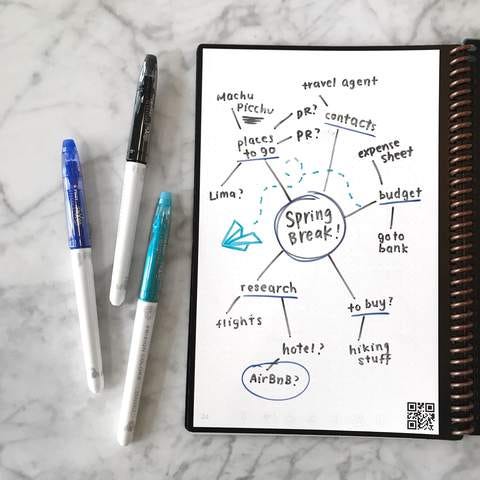 travel agent
Machu
Picchu
DR?
contacts
places
to go
PR?
expense
sheet
Lima?
budget
Spring
Break!
go to
bank
research
to buy?
flights
hotel?
hiking
stuff
AirBnB?